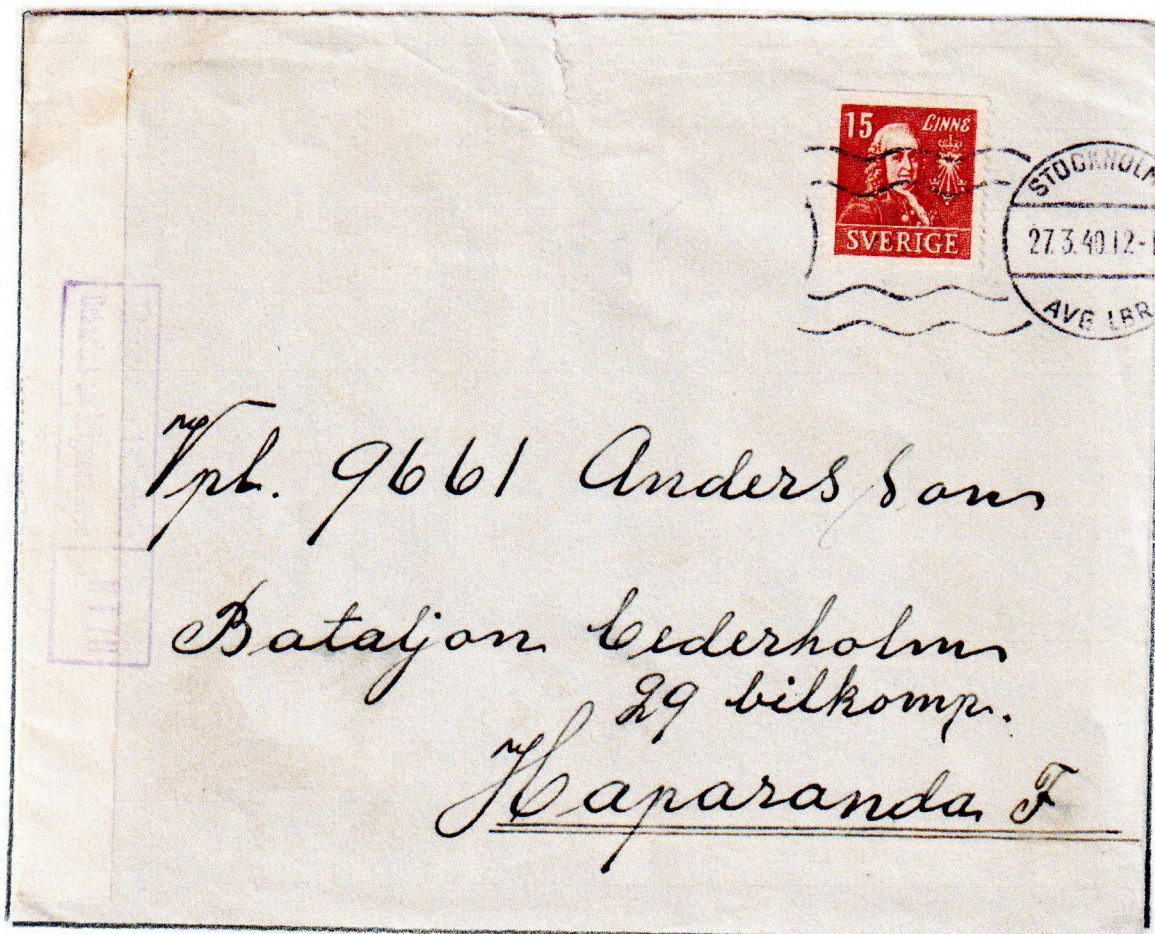 15 LINNÉ
SVERIGE
STOCKHOLM
27.3.40.12-1
AVG LBR
Vpl. 9661 Andersson
Bataljon Cederholm
29 bilkomp.
Haparanda F